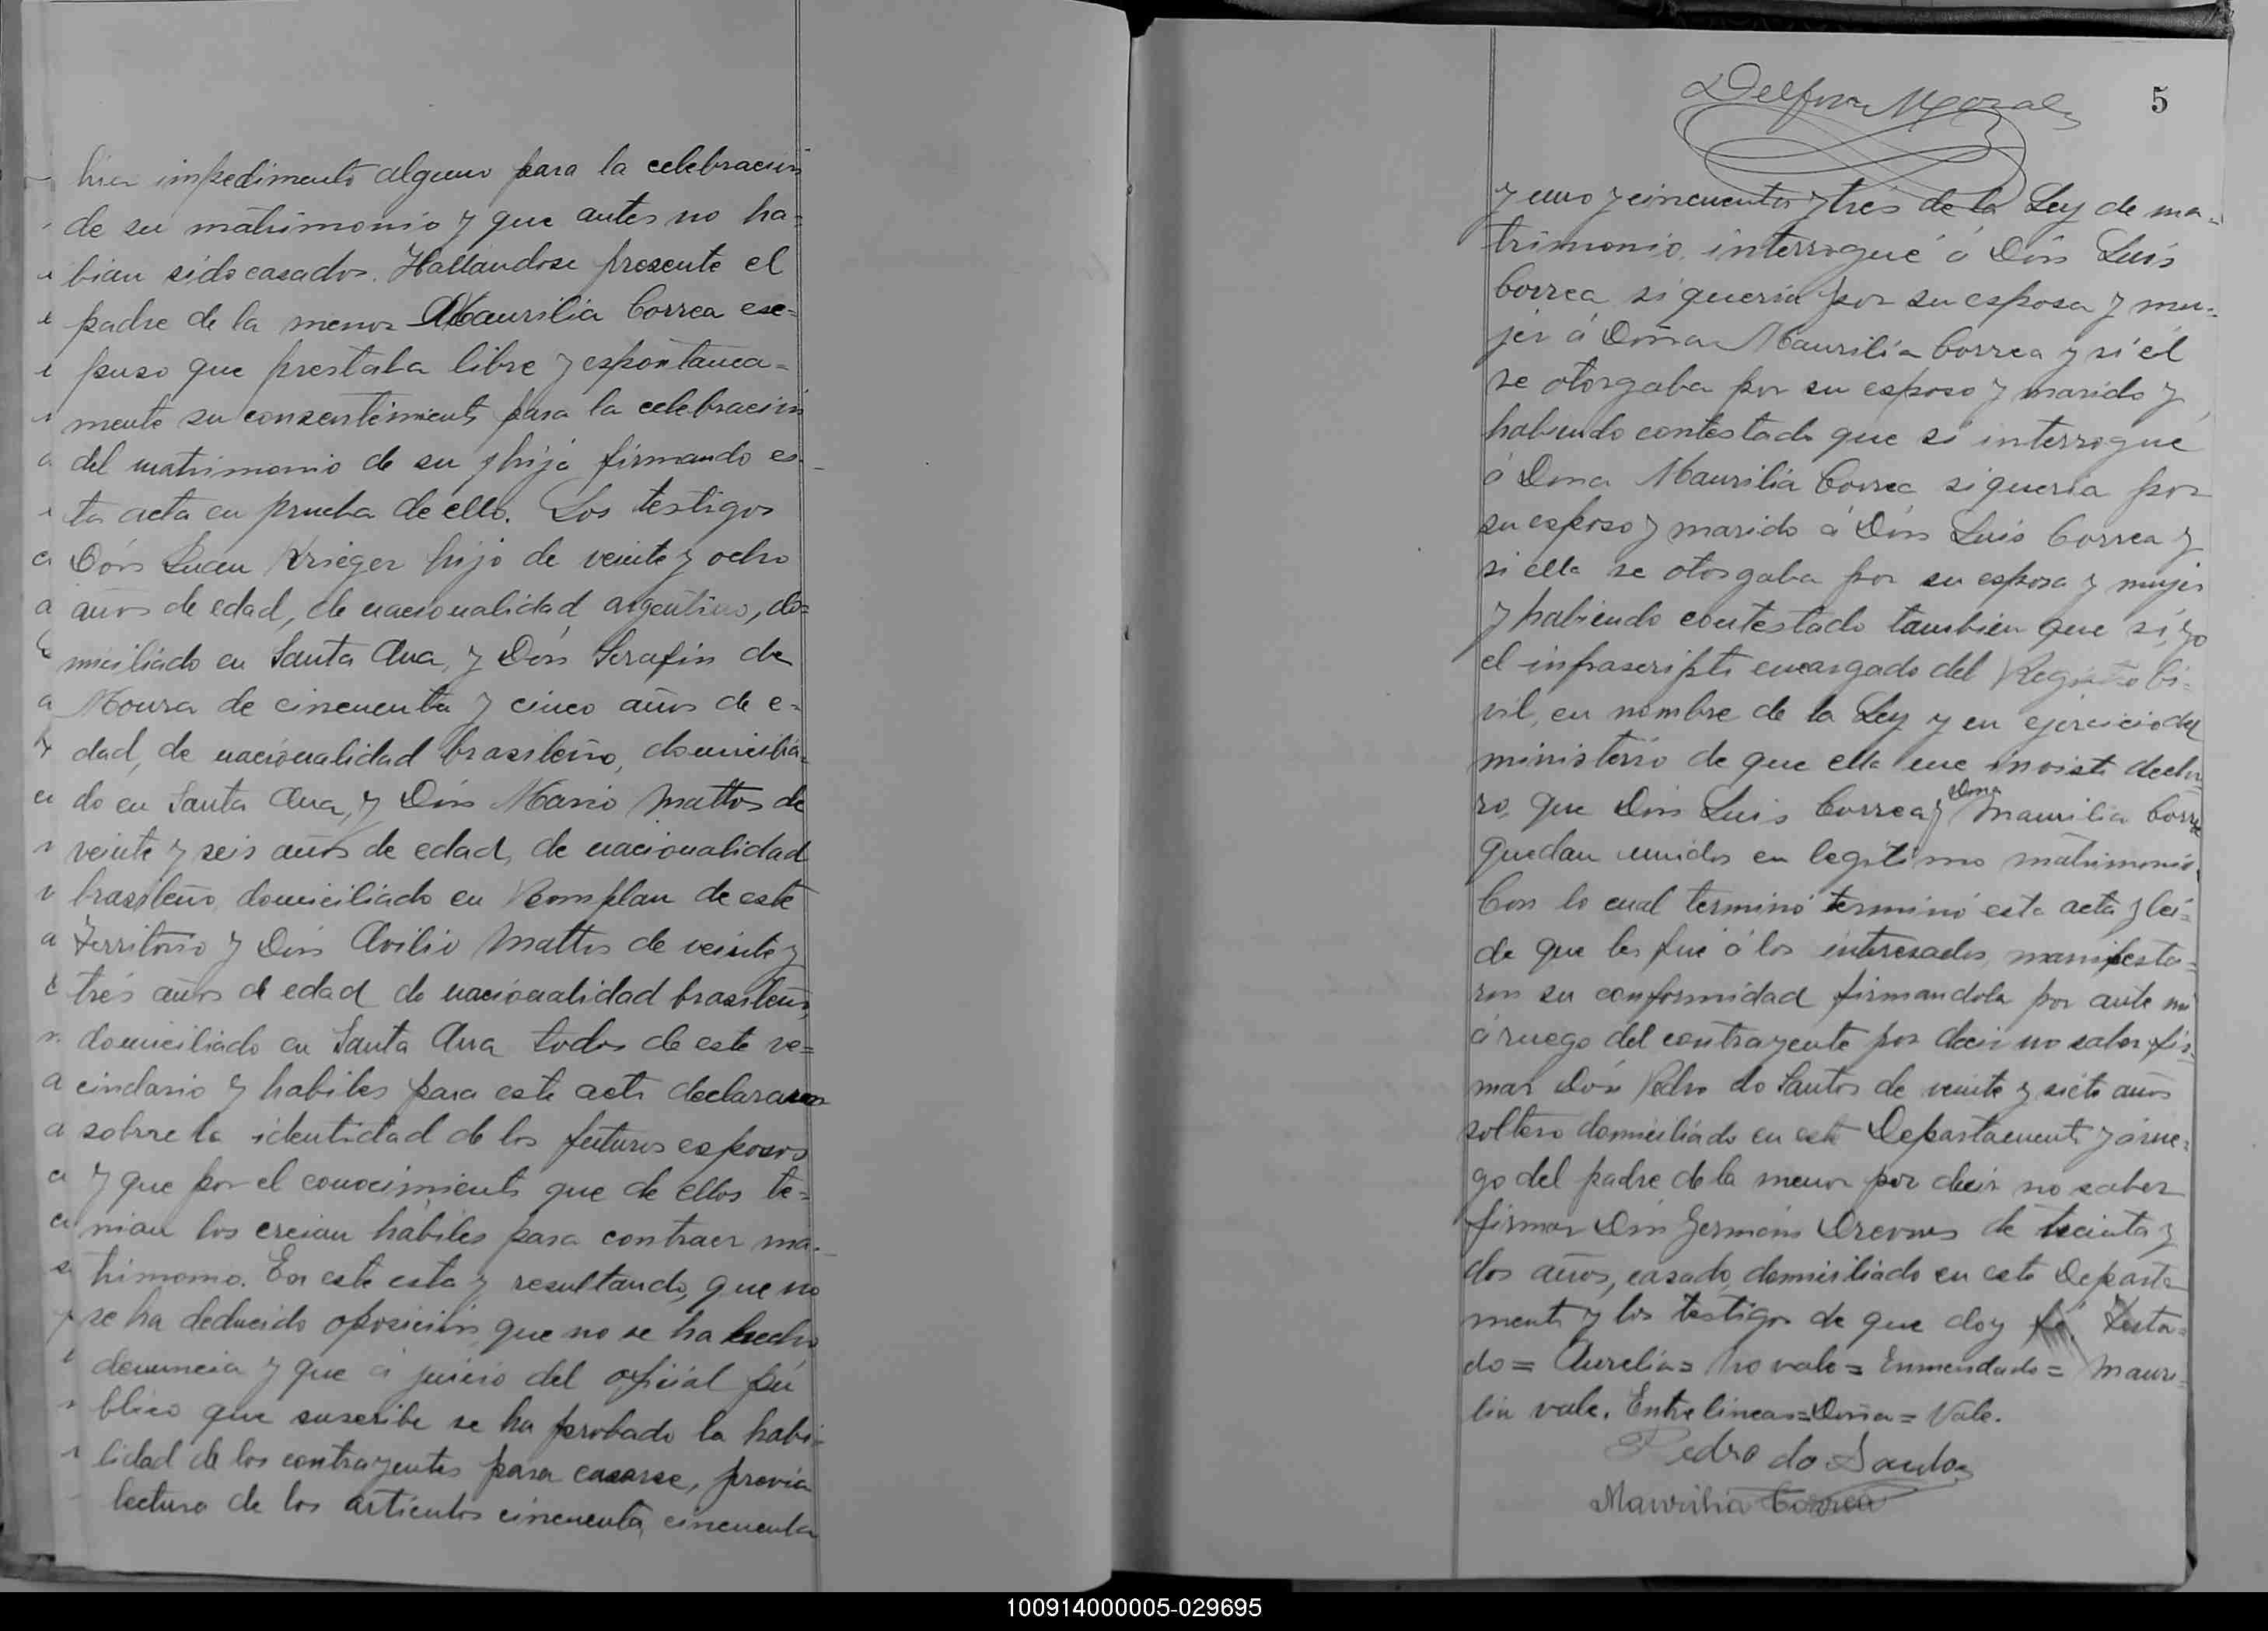 bier impedimento alguno para la celebración
de su matrimonio y que antes no ha=
bian sido casados. Hallandose presente el
padre de la menor Maurilia Correa es=
puso que prestaba libre y espontanea=
mente su consentimiento para la celebración
del matrimonio de su hija firmando es-
ta acta en prueba de ello. Los testigos
Dón Juan Krieger hijo de veinte y ocho
años de edad, de nacionalidad argentino, do=
miciliado en Santa Ana, y Dón Serafin de
Moura de cincuenta y cinco años de e-
dad, de nacionalidad brasileño, domicilia-
do en Santa Ana, y Dón Mario Mattos de
veinte y seis años de edad, de nacionalidad
brasileño, domiciliado en Bomplan de este
Territorio y Dón Avilio Mattos de veinte y
tres años de edad de nacionalidad brasileño,
domiciliado en Santa Ana todos de este ve=
cindario y habiles para este acto declararon
sobre la identidad de los futuros esposos
y que por el conocimiento que de ellos te=
nian los creian hábiles para contraer ma-
trimonio. En este esta y resultando, que no
se ha deducido oposición, que no se ha hecho
denuncia y que á juicio del oficial pú
blico que suscribe se ha probado la habi-
lidad de los contrayentes para casarse, previa
lectura de los artículos cincuenta, cincuenta
5
Delfin Moral
y uno y cincuenta y tres de la Ley de ma=
trimonio, interrogué á Dón Luis
Correa si queria por su esposa y mu=
jer á Doña Maurilia Correa y si él
se otorgaba por su esposo y marido y
habiendo contestado que si interrogué
á Dona Maurilia Correa si queria por
su esposo y marido á Dón Luis Correa y
si ella se otorgaba por su esposa y mujer
y habiendo contestado tambien que si, yo
el infrascripto encargado del Registro Ci-
vil, en nombre de la Ley y en ejercicio del
ministerio de que ella me invisti decla
ro, que Dón Luis Correa y Dona Maurilia Corre
quedan unidos en legitimo matrimonio.
Con lo cual terminó terminó esta acta y lei=
da que les fué á los interesados, manifesta=
ron su conformidad firmandola por ante mi
á ruego del contrayente por decir no saber fir-
mar Dón Pedro do Santos de veinte y siete años
soltero domiciliado en este Departamento y á rue=
go del padre de la menor por decir no saber
firmar Dón Germán de treinta y
dos años, casado, domiciliado en este Departa
mento y los testigos de que doy fé. Testa=
do= Aurelia= No vale= Enmendado= Mauri-
lia vale. Entre lineas=Doña= Vale.
Pedro do Santos
Maurilia Correa
100914000005-029695